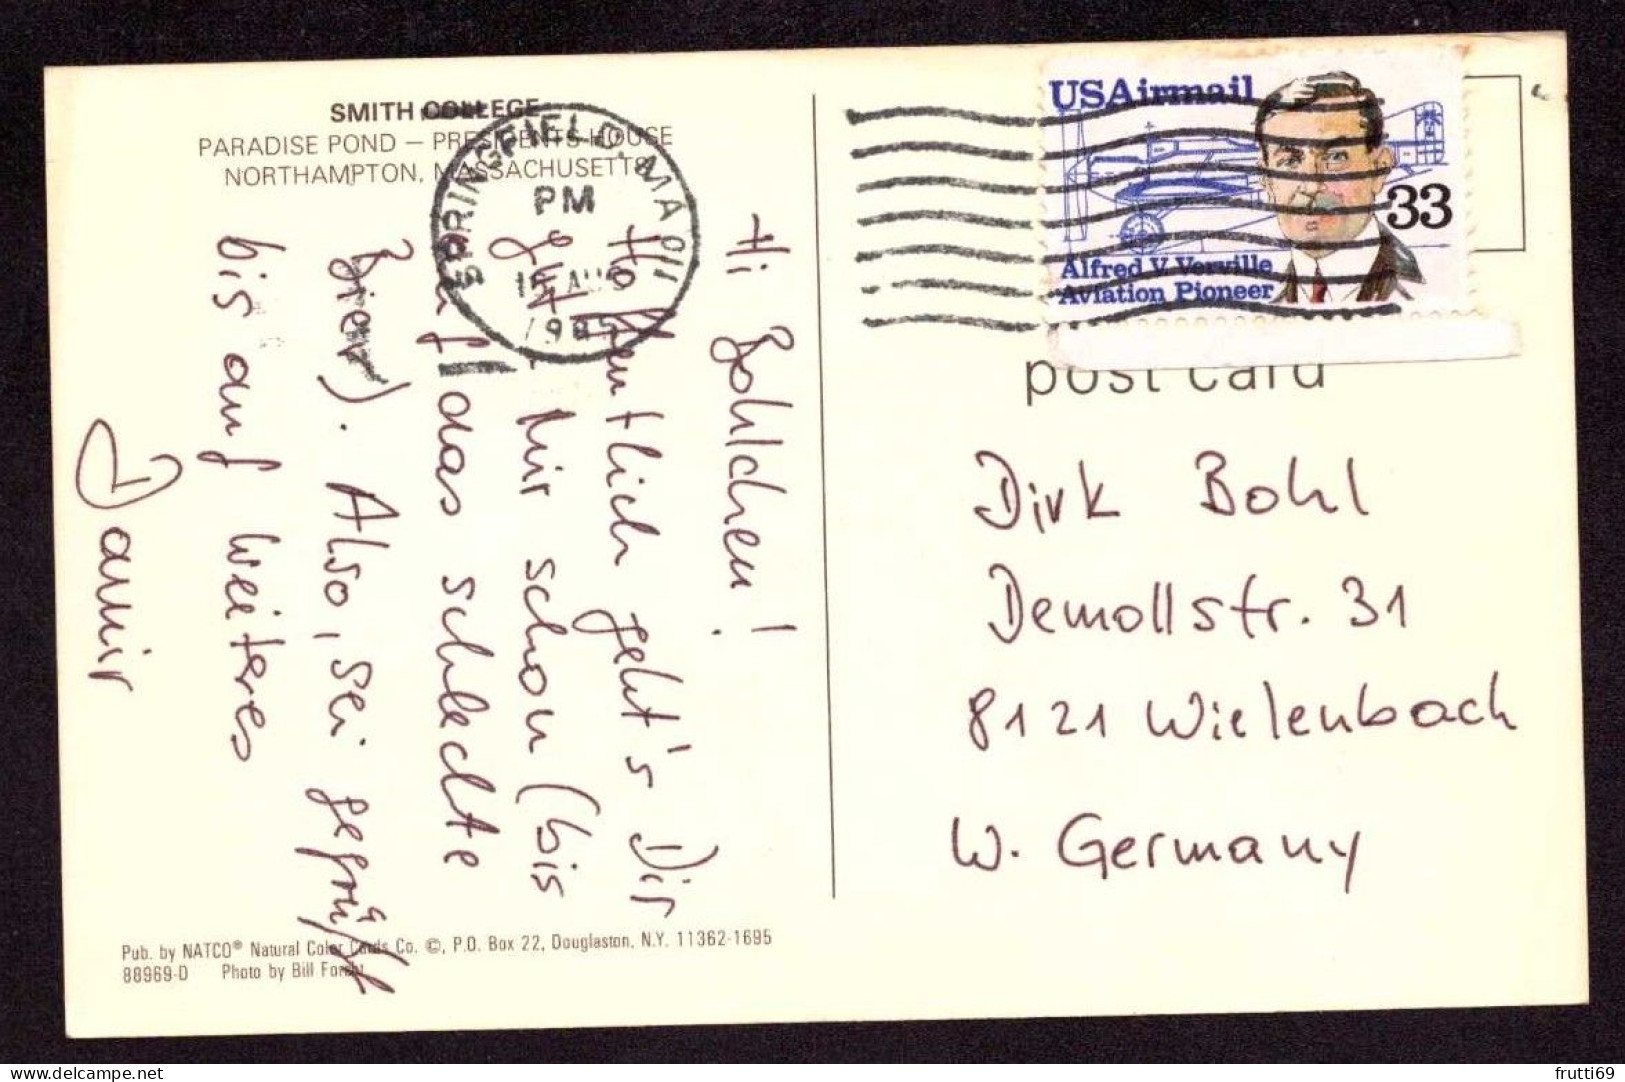 SMITH COLLEGE
PARADISE POND — PRESIDENTS HOUSE
NORTHAMPTON, MASSACHUSETTS
SPRINGFIELD, MA 011
PM
AUG
1985
USAirmail
33
Alfred V. Verville
Aviation Pioneer
post card
Hi Bohlchen!
Hoffentlich geht's Dir
gut. Mir schon (bis
auf das schlechte
Bier). Also, sei gegrüßt
bis auf weiteres
Damir
Dirk Bohl
Demollstr. 31
8121 Wielenbach
W. Germany
Pub. by NATCO® Natural Color Cards Co. ©, P.O. Box 22, Douglaston, N.Y. 11362-1695
88969-D Photo by Bill Forcht
delcampe.net
frutti69